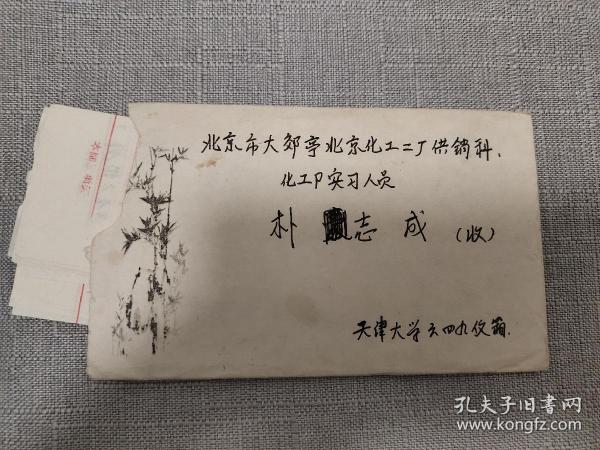 北京市大郊亭北京化工二厂供销科、
化工P实习人员
朴志成(收)
天津大学六四九仪箱.
孔夫子旧书网
www.kongfz.com